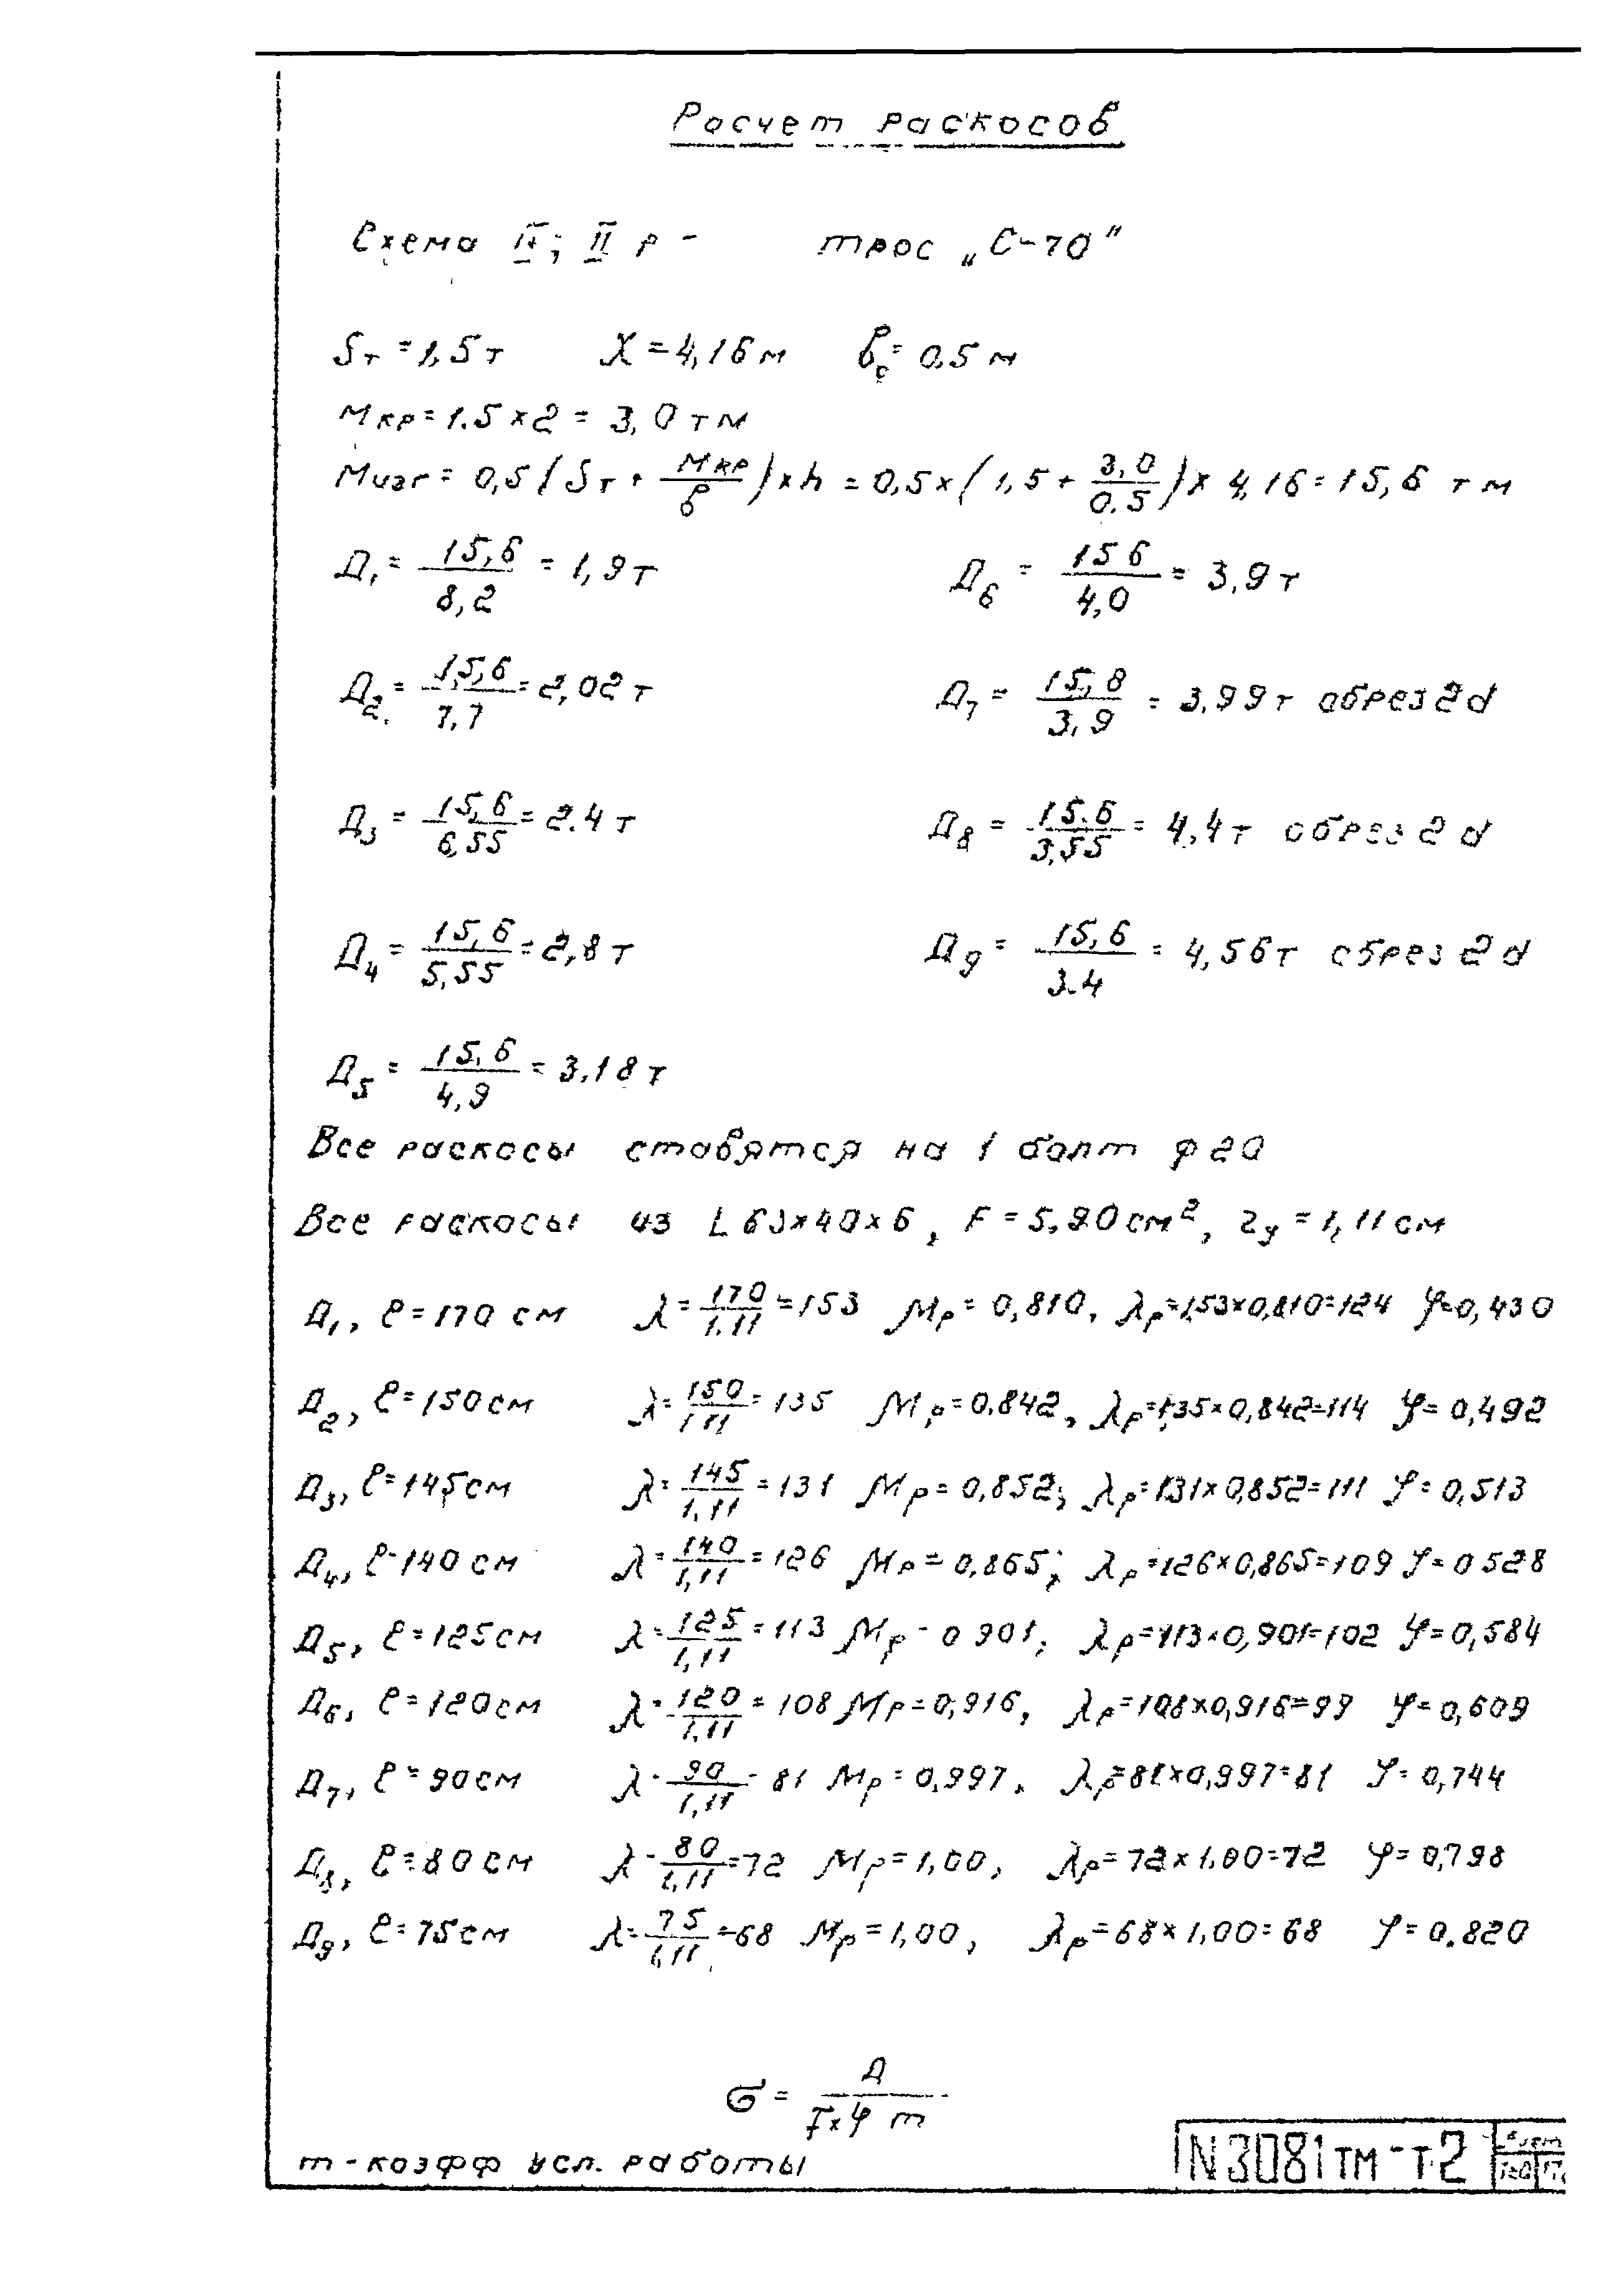 Расчет раскосов
Схема IV; II р - трос „С-70"
Sт = 1,5т X = 4,16м bс = 0,5 м
Мкр = 1.5 × 2 = 3,0 тм
Мизг = 0,5 (Sт + Мкр/b) × h = 0,5 × (1,5 + 3,0/0.5) × 4,16 = 15,6 тм
Д1 = 15,6/8,2 = 1,9т Д6 = 15 6/4,0 = 3,9т
Д2 = 15,6/7,7 = 2,02т Д7 = 15,8/3,9 = 3,99т обрез 2d
Д3 = 15,6/6,55 = 2.4т Д8 = 15.6/3,55 = 4,4т обрез 2d
Д4 = 15,6/5,55 = 2,8т Д9 = 15,6/3.4 = 4,56т обрез 2d
Д5 = 15.6/4,9 = 3,18т
Все раскосы ставятся на 1 болт φ20
Все раскосы из L 63×40×6, F = 5,90см², ry = 1,11см
Д1, ℓ=170 см λ=170/1.11=153 Mр=0,810, λр=153×0,810=124 φ=0,430
Д2, ℓ=150см λ=150/1,11=135 Mр=0.842, λр=135×0,842=114 φ=0,492
Д3, ℓ=145см λ=145/1,11=131 Mр=0,852; λр=131×0,852=111 φ=0,513
Д4, ℓ=140 см λ=140/1,11=126 Mр=0.865; λр=126×0,865=109 φ=0 528
Д5, ℓ=125см λ=125/1,11=113 Mр-0 901; λр=113×0,901=102 φ=0,584
Д6, ℓ=120см λ=120/1,11=108 Mр=0,916, λр=108×0,916=99 φ=0,609
Д7, ℓ=90см λ=90/1,11=81 Mр=0,997, λр=81×0,997=81 φ=0,744
Д8, ℓ=80см λ=80/1,11=72 Mр=1,00, λр=72×1,00=72 φ=0,798
Д9, ℓ=75см λ=75/1,11=68 Mр=1,00, λр=68×1,00=68 φ=0.820
σ = Д/F×φ m
m - коэфф усл. работы
N3081тм-т2